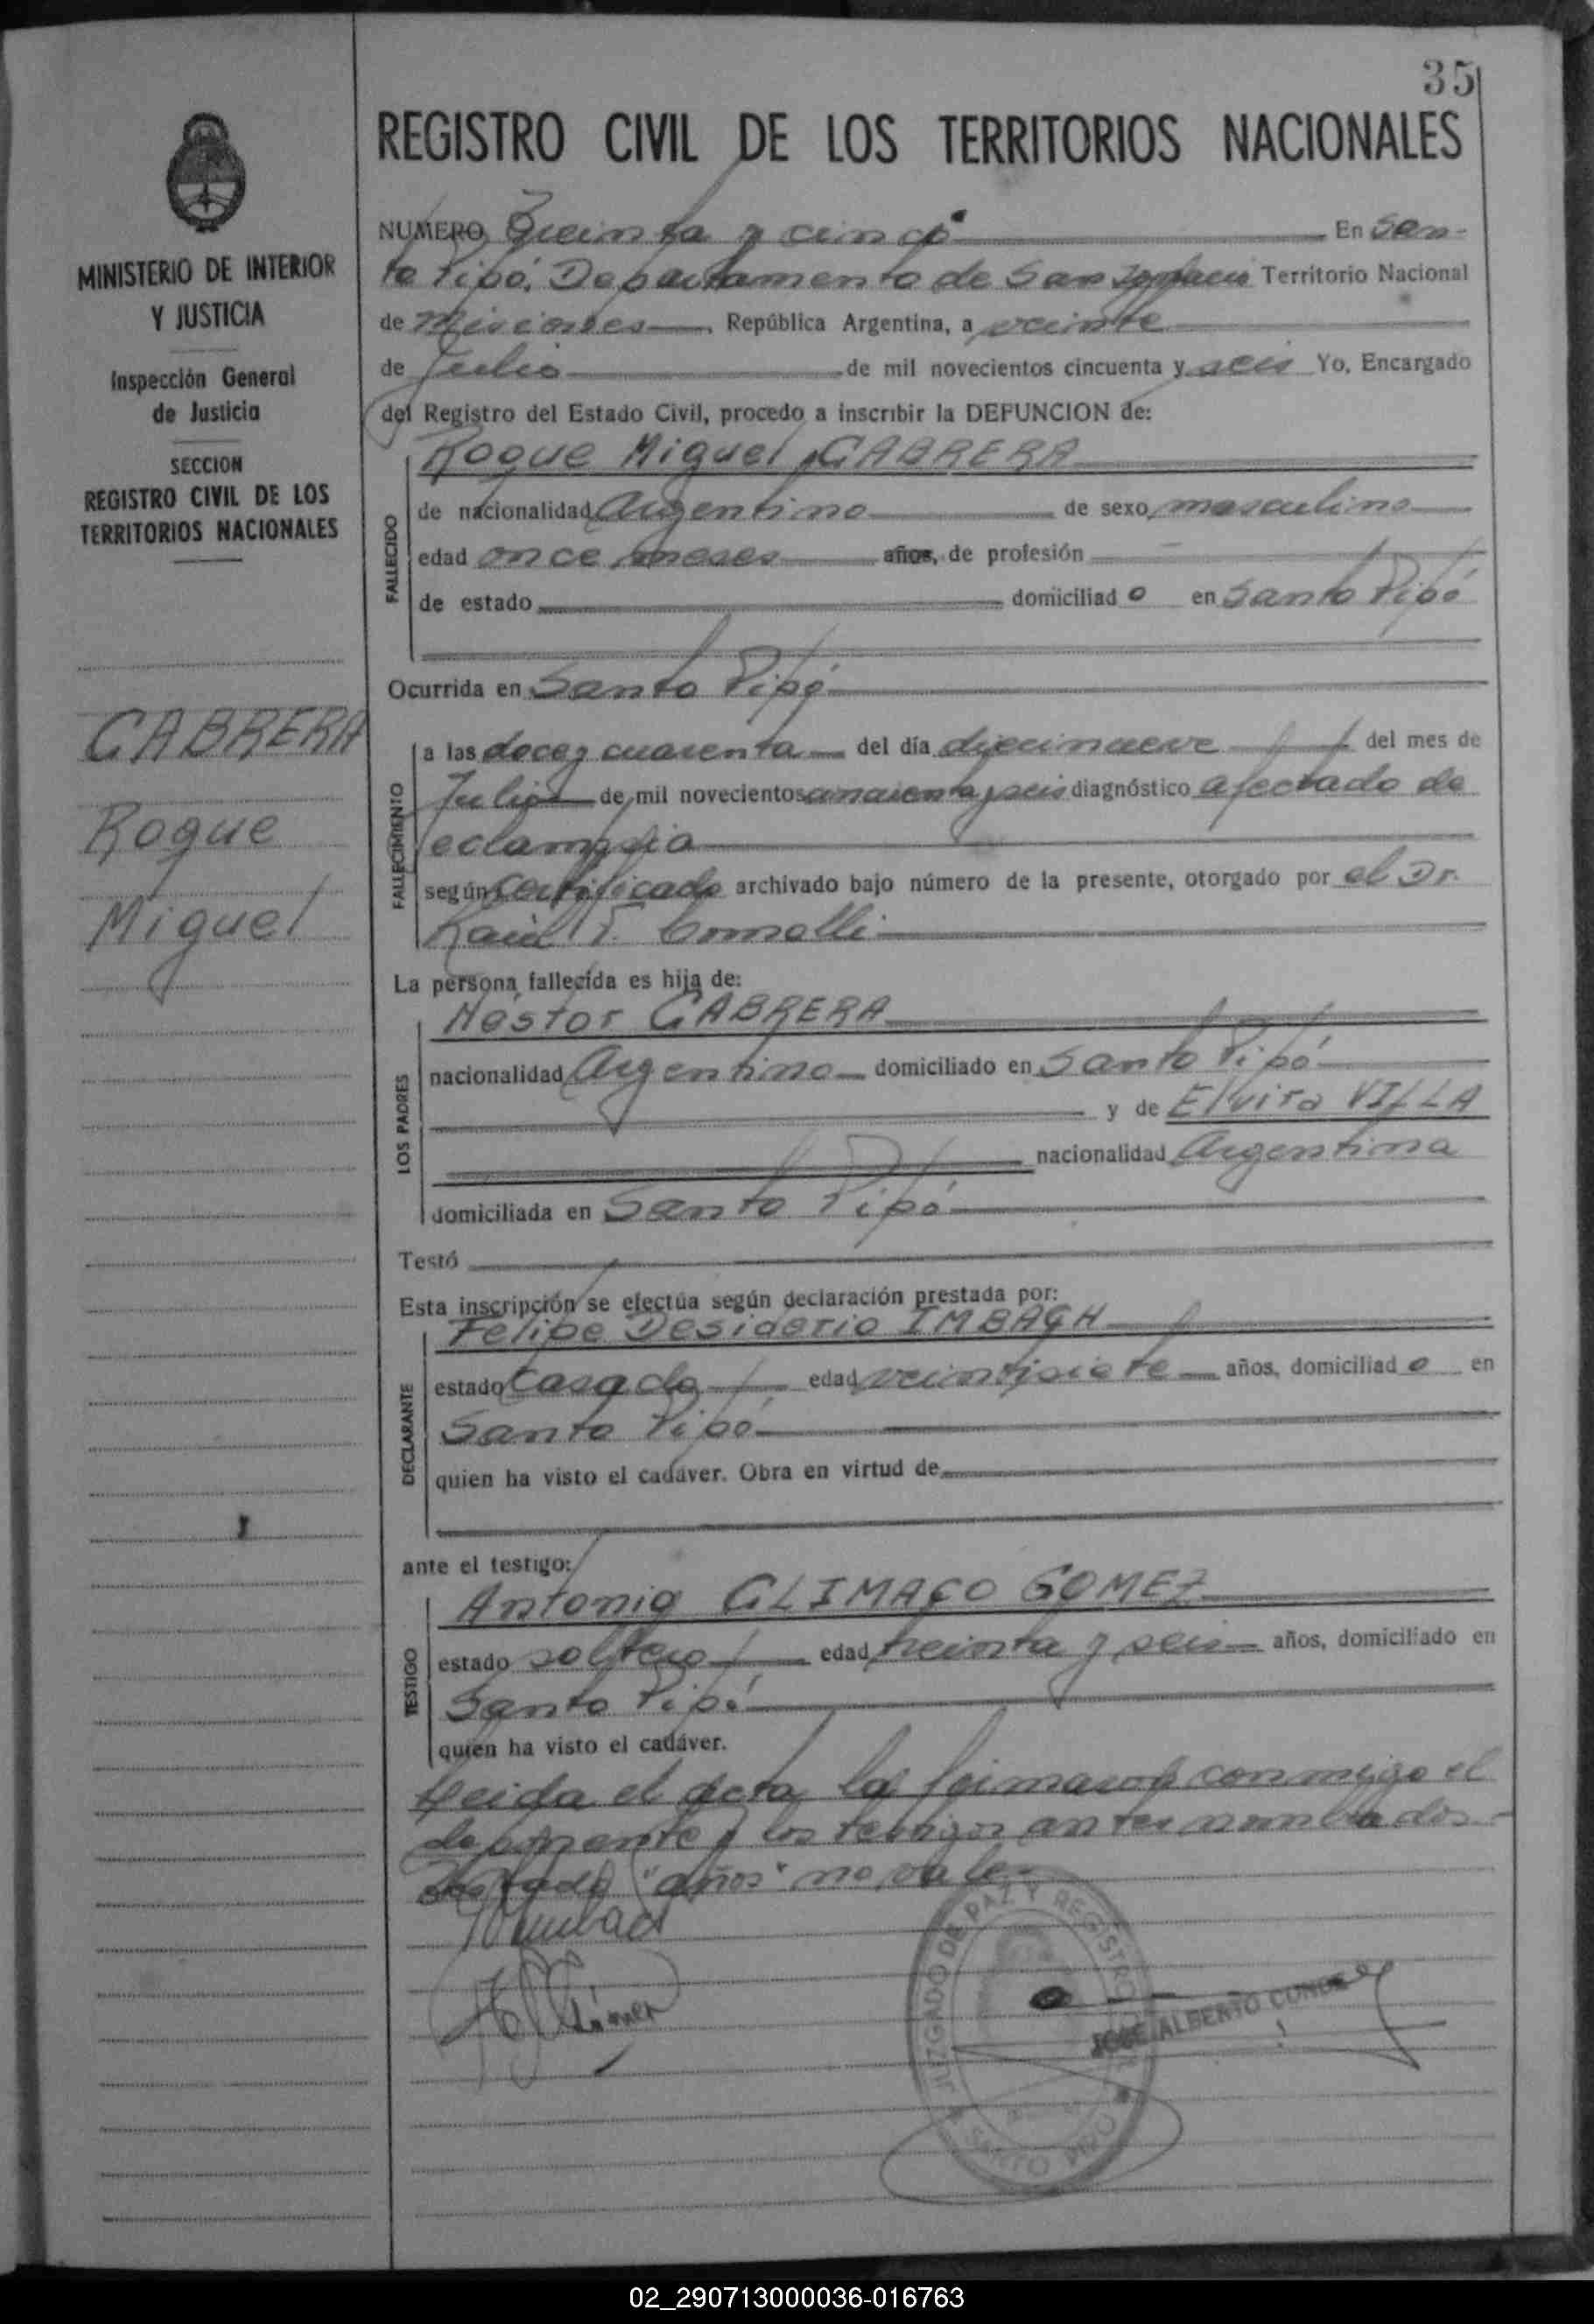 35
REGISTRO CIVIL DE LOS TERRITORIOS NACIONALES
MINISTERIO DE INTERIOR
Y JUSTICIA
Inspección General
de Justicia
SECCION
REGISTRO CIVIL DE LOS
TERRITORIOS NACIONALES
CABRERA
Roque
Miguel
NUMERO Treinta y cinco En San-
to Pipó, Departamento de San Ignacio Territorio Nacional
de Misiones, República Argentina, a veinte
de Julio de mil novecientos cincuenta y seis Yo, Encargado
del Registro del Estado Civil, procedo a inscribir la DEFUNCION de:
FALLECIDO
Roque Miguel CABRERA
de nacionalidad Argentino de sexo masculino
edad once meses años, de profesión
de estado domiciliado en Santo Pipó
Ocurrida en Santo Pipó
FALLECIMIENTO
a las doce y cuarenta del día diecinueve del mes de
Julio de mil novecientos diagnóstico afectado de
eclampsia
según certificado archivado bajo número de la presente, otorgado por el Dr.
Raúl
La persona fallecida es hija de:
LOS PADRES
Néstor CABRERA
nacionalidad Argentino domiciliado en Santo Pipó
y de Elvira VILLA
nacionalidad Argentina
domiciliada en Santo Pipó
Testó
Esta inscripción se efectúa según declaración prestada por:
DECLARANTE
Felipe Desiderio IMBACH
estado Casado edad veintisiete años, domiciliado en
Santo Pipó
quien ha visto el cadáver. Obra en virtud de
ante el testigo:
TESTIGO
Antonio CLIMACO GOMEZ
estado soltero edad treinta y seis años, domiciliado en
Santo Pipó
quien ha visto el cadáver.
Leida el acta la firmaron conmigo el
deponente y los testigos antes nombrados.-
Testado "años" no vale.
JUZGADO DE PAZ Y REGISTRO CIVIL
SANTO PIPO
JOSE ALBERTO CONDE
02_290713000036-016763